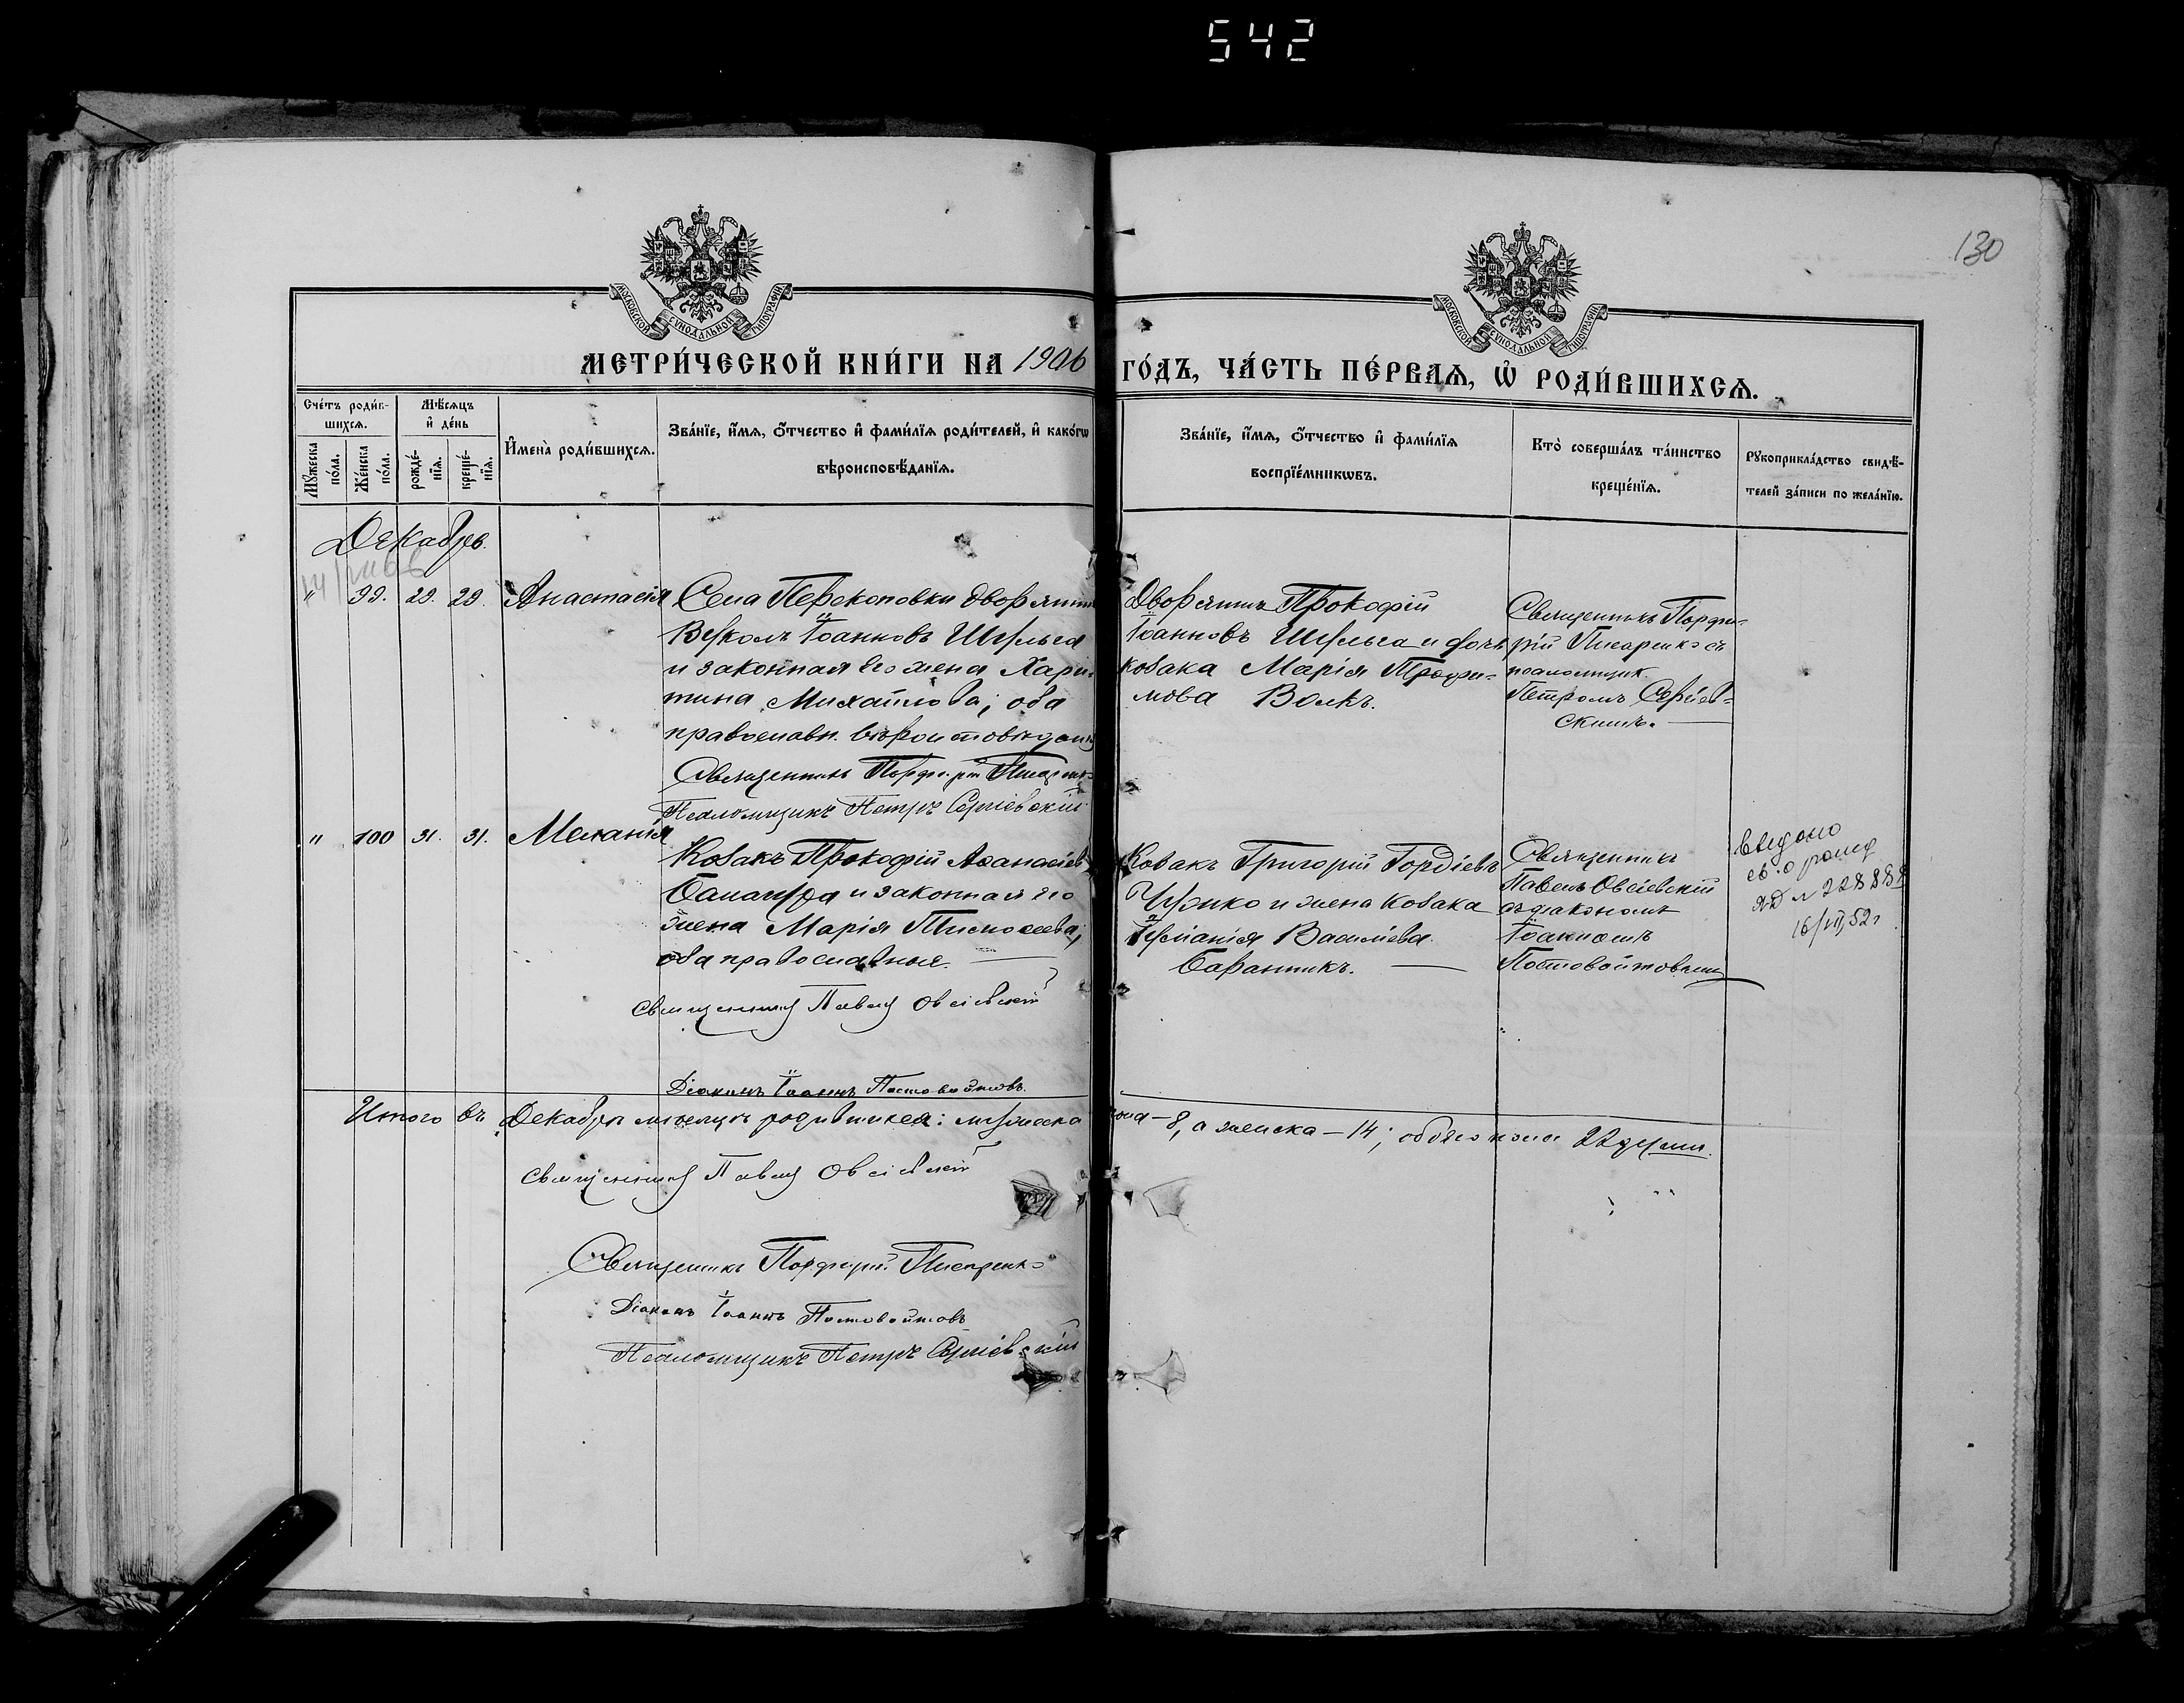 542
130
МОСКОВСКОЙ СУНОДАЛЬНОЙ ТИПОГРАФІИ
МОСКОВСКОЙ СУНОДАЛЬНОЙ ТИПОГРАФІИ
МЕТРИ́ЧЕСКОЙ КНИ́ГИ НА 1906 ГО́ДЪ, ЧА́СТЬ ПЕ́РВАѦ, Ѡ҆ РОДИ́ВШИХСѦ.
Сче́тъ роди́в-
шихсѧ.
Мꙋ́жеска по́ла.
Же́нска по́ла.
Мѣ́сѧцъ
и҆ де́нь
рожде́-
нїѧ.
креще́-
нїѧ.
И҆мена̀ роди́вшихсѧ.
Зва́нїе, и҆́мѧ, ѻ҆́тчество и҆ фами́лїѧ роди́телей, и҆ како́гѡ
вѣроисповѣ́данїѧ.
Зва́нїе, и҆́мѧ, ѻ҆́тчество и҆ фами́лїѧ
воспрїе́мникѡвъ.
Кто̀ соверша́лъ та́инство
креще́нїѧ.
Рꙋкоприкла́дство свидѣ́-
телей за́писи по жела́нїю.
Декабрь.
" 99. 29. 29. Анастасія
Села Перекоповки дворянинъ
Іоанновъ Шкулька
и законная его жена Хари-
тина Михайлова; оба
православн. вѣроисповѣданія
Священникъ Порфирій Писаренко
Псаломщикъ Петръ Сергіевскій
Дворянинъ Прокофій
Іоанновъ и дочь
козака Марія Трофи-
мова Волкъ.
Священникъ Порфи-
рій Писаренко съ
псаломщик.
Петромъ Сергіев-
скимъ.
" 100 31. 31. Меланія
Козакъ Прокофій Аѳанасіевъ
и законная его
жена Марія Тимоѳеева;
оба православные.
Священникъ Павелъ Овсіевскій
Діаконъ Іоаннъ Постовойтовъ.
Козакъ Григорій Гордіевъ
и жена козака
Васильева
Баранникъ.
Священникъ
Павелъ Овсіевскій
съ діакономъ
Іоанномъ
Постовойтовымъ
видано
св. о рожд
16/VII 52 г
Итого въ Декабрѣ мѣсяцѣ родившихся: мужеска пола - 8, а женска - 14; обоего пола 22 души.
Священникъ Павелъ Овсіевскій
Священникъ Порфирій Писаренко
Діаконъ Іоаннъ Постовойтовъ
Псаломщикъ Петръ Сергіевскій